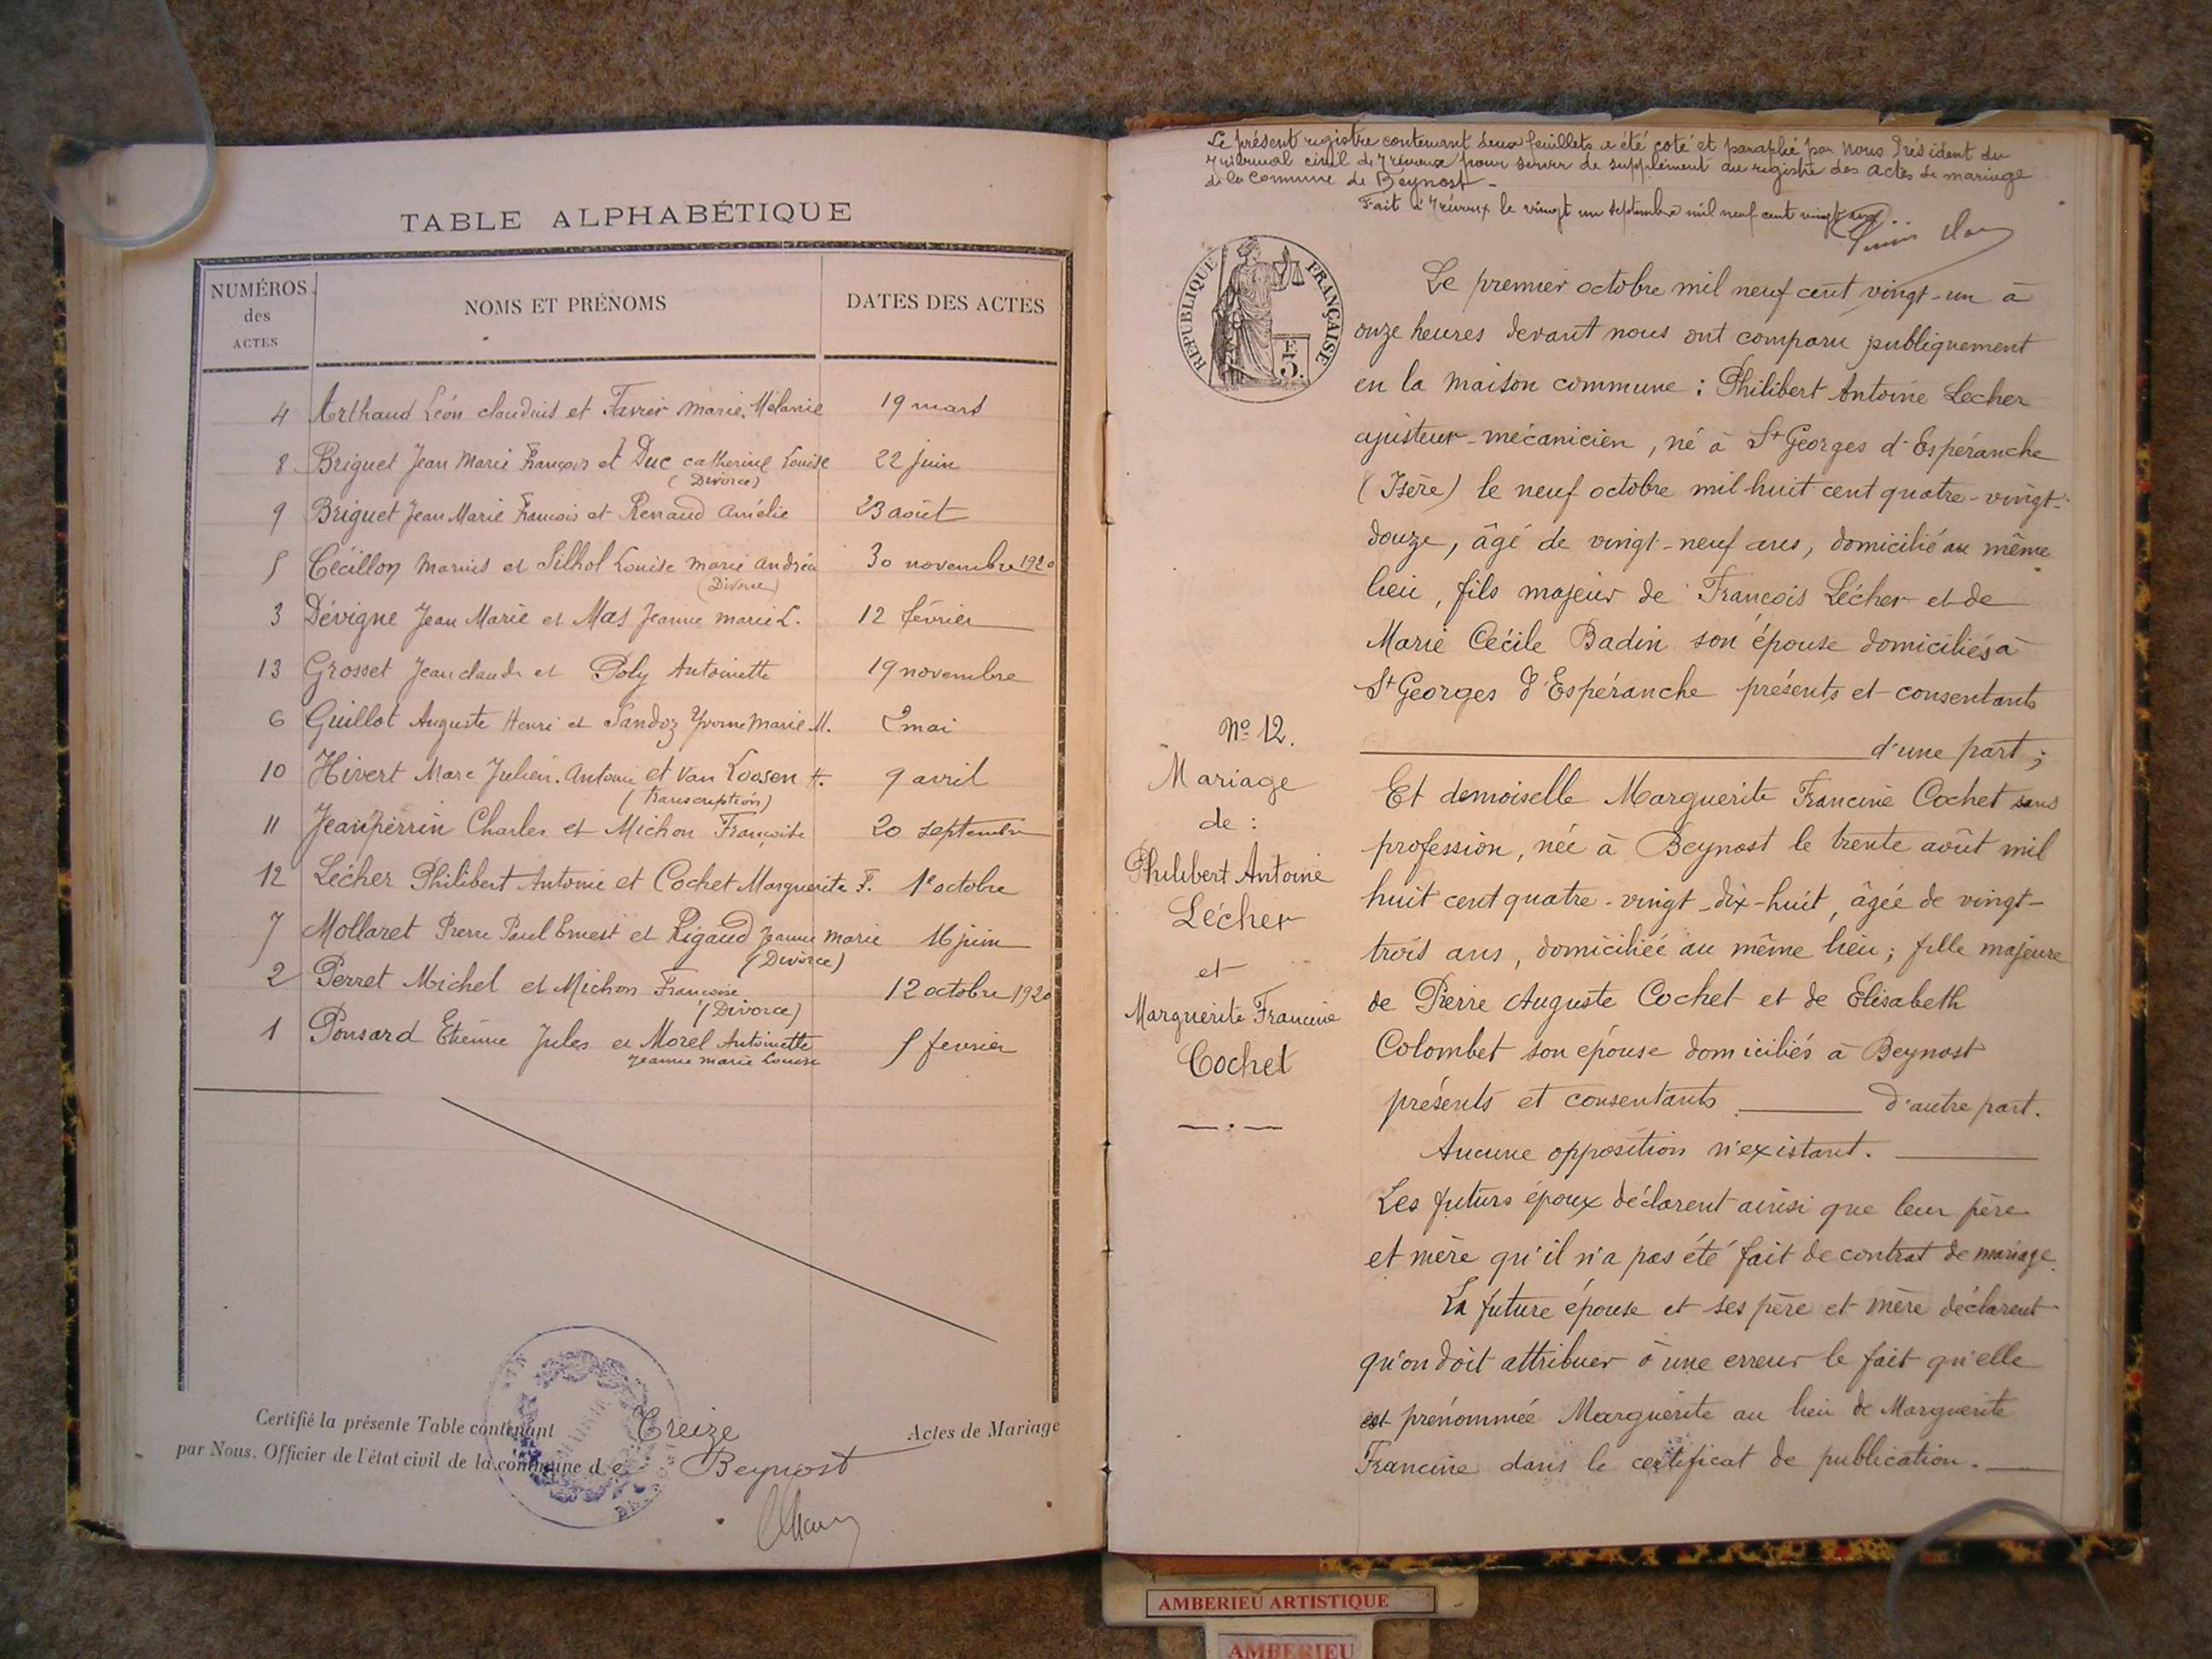 TABLE ALPHABÉTIQUE
NUMÉROS des ACTES NOMS ET PRÉNOMS DATES DES ACTES
4 Arthaud Léon claudius et Favier Marie Mélanie 19 mars
8 Briguet Jean Marie François et Duc catherine Louise 22 juin
(Divorce)
9 Briguet Jean Marie Francois et Renaud Amélie 23 août
5 Cécillon Marius et Silhol Louise marie andréa 30 novembre 1920
(Divorce)
3 Dévigne Jean Marie et Mas Jeanne marie L. 12 février
13 Grosset Jean claude et Poly Antoinette 19 novembre
6 Guillot Auguste Henri et Sandoz Yvonne Marie M. 2 mai
10 Hivert Marc Julien Antoine et Van Loosen H. 9 avril
(transcription)
11 Jeanperrin Charles et Michon Françoise 20 septembre
12 Lécher Philibert Antoine et Cochet Marguerite F. 1e octobre
7 Mollaret Pierre Paul Ernest et Rigaud Jeanne Marie 16 juin
(Divorce)
2 Perret Michel et Michon Francoise 12 octobre 1920
(Divorce)
1 Ponsard Etienne Jules et Morel Antoinette 5 fevrier
Jeanne marie Louise
Certifié la présente Table contenant Treize Actes de Mariage
par Nous, Officier de l'état civil de la commune de Beynost
Le présent registre contenant deux feuillets a été coté et paraphé par Nous Président du
tribunal civil de Trévoux pour servir de supplément au registre des actes de mariage
de la Commune de Beynost -
Fait à Trévoux le vingt un septembre mil neuf cent vingt un
REPUBLIQUE FRANÇAISE
E 3.
Le premier octobre mil neuf cent vingt-un à
onze heures devant nous ont comparu publiquement
en la maison commune : Philibert Antoine Lecher
ajusteur-mécanicien, né à St Georges d'Espéranche
(Isère) le neuf octobre mil huit cent quatre-vingt-
douze, âgé de vingt-neuf ans, domicilié au même
lieu, fils majeur de François Lécher et de
Marie Cécile Badin son épouse domiciliés à
St Georges d'Espéranche présents et consentants
d'une part ;
Et demoiselle Marguerite Francine Cochet sans
profession, née à Beynost le trente août mil
huit cent quatre-vingt-dix-huit, âgée de vingt-
trois ans, domiciliée au même lieu ; fille majeure
de Pierre Auguste Cochet et de Elisabeth
Colombet son épouse domiciliés à Beynost
présents et consentants d'autre part.
Aucune opposition n'existant.
Les futurs époux déclarent ainsi que leur père
et mère qu'il n'a pas été fait de contrat de mariage.
La future épouse et ses père et mère déclarent
qu'on doit attribuer à une erreur le fait qu'elle
est prénommée Marguerite au lieu de Marguerite
Francine dans le certificat de publication.
No 12.
Mariage
de :
Philibert Antoine
Lécher
et
Marguerite Francine
Cochet
AMBERIEU ARTISTIQUE
AMBERIEU